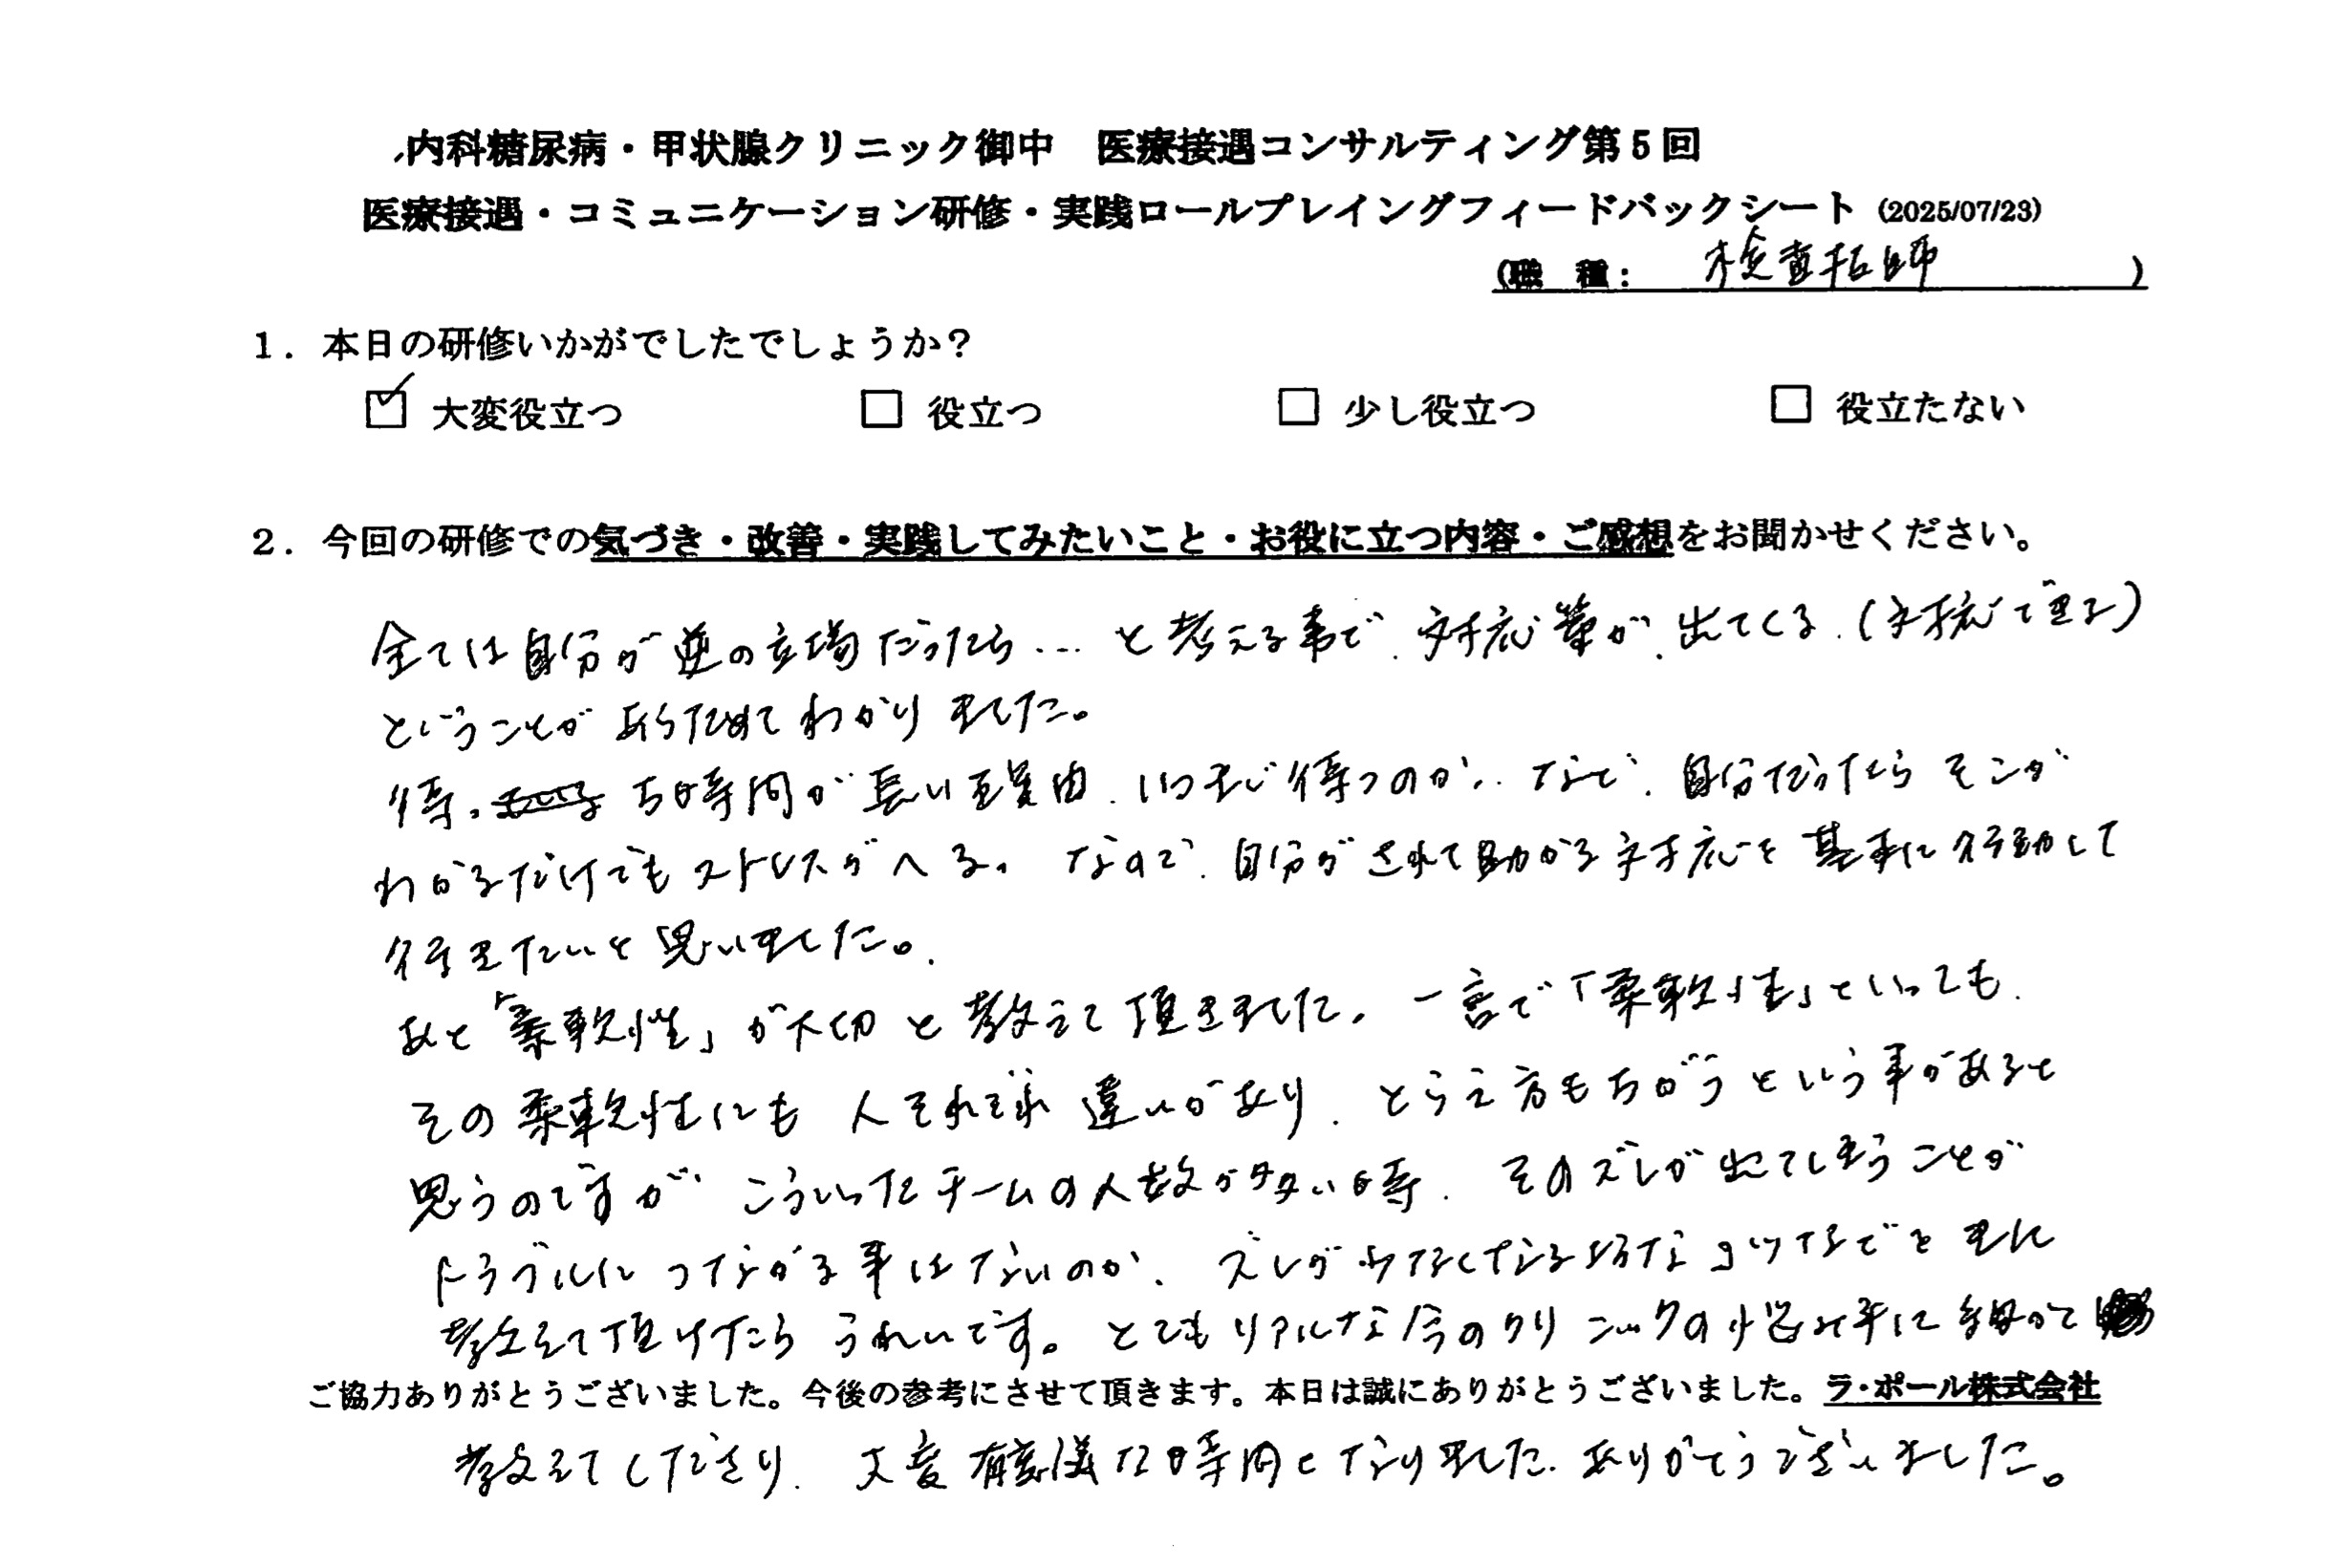 内科糖尿病・甲状腺クリニック御中　医療接遇コンサルティング第5回
医療接遇・コミュニケーション研修・実践ロールプレイングフィードバックシート (2025/07/23)
(職　種：　検査技師　)
1．本日の研修いかがでしたでしょうか？
☑ 大変役立つ　□ 役立つ　□ 少し役立つ　□ 役立たない
2．今回の研修での気づき・改善・実践してみたいこと・お役に立つ内容・ご感想をお聞かせください。
全ては自分が逆の立場だったら…と考える事で、対応策が、出てくる。(対応できる)
ということがあらためてわかりました。
待ち時間が長い理由、いつまで待つのか、など、自分だったらそこが
わかるだけでもストレスがへる。なので、自分がされて助かる対応を基本に行動して
行きたいと思いました。
あと「柔軟性」が大切と教えて頂きました。一言で「柔軟性」といっても、
その柔軟性にも人それぞれ違いがあり、とらえ方もちがうという事があると
思うのですが、こういったチームの人数が多い時、そのズレが出てしまうことが
トラブルにつながる事はないのか、ズレが少なくなる様なコツなどを更に
教えて頂けたらうれしいです。とてもリアルな今のクリニックの悩み事に
ご協力ありがとうございました。今後の参考にさせて頂きます。本日は誠にありがとうございました。ラ・ポール株式会社
教えてくださり、大変有意義な時間となりました。ありがとうございました。